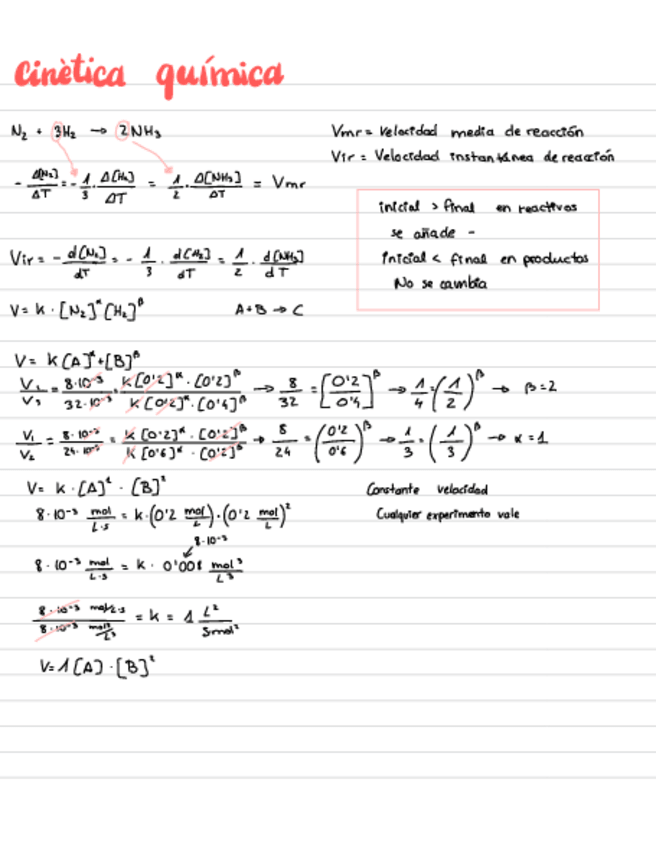 Cinètica química
N₂ + 3H₂ → 2NH₃
Vmr = Velocidad media de reacción
Vir = Velocidad instantánea de reacción
- Δ[N₂]/ΔT = - 1/3 · Δ[H₂]/ΔT = 1/2 · Δ[NH₃]/ΔT = Vmr
inicial > final en reactivos
se añade -
inicial < final en productos
No se cambia
Vir = - d[N₂]/dT = - 1/3 · d[H₂]/dT = 1/2 · d[NH₃]/dT
V = k · [N₂]^α [H₂]^β
A + B → C
V = k[A]^α + [B]^β
V₁/V₃ = 8·10⁻³/32·10⁻³ = k[0'2]^α · [0'2]^β / k[0'2]^α · [0'4]^β → 8/32 = [0'2/0'4]^β → 1/4 = (1/2)^β → β = 2
V₁/V₂ = 8·10⁻³/24·10⁻³ = k[0'2]^α · [0'2]^β / k[0'6]^α · [0'2]^β → 8/24 = (0'2/0'6)^β → 1/3 = (1/3)^β → α = 1
V = k · [A]¹ · [B]²
Constante velocidad
8·10⁻³ mol/L·s = k · (0'2 mol/L) · (0'2 mol/L)²
Cualquier experimento vale
8·10⁻³
8·10⁻³ mol/L·s = k · 0'008 mol³/L³
8·10⁻³ mol/L·s / 8·10⁻³ mol³/L³ = k = 1 L²/s mol²
V = 1[A] · [B]²